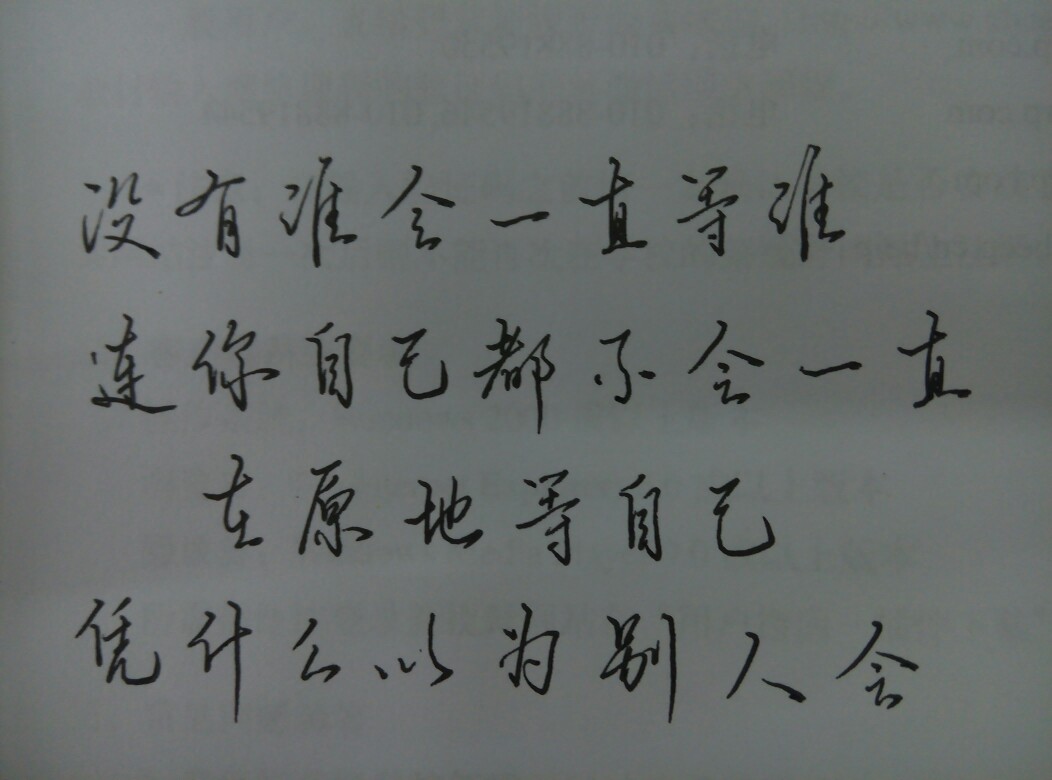 没有谁会一直等谁
连你自己都不会一直
在原地等自己
凭什么以为别人会